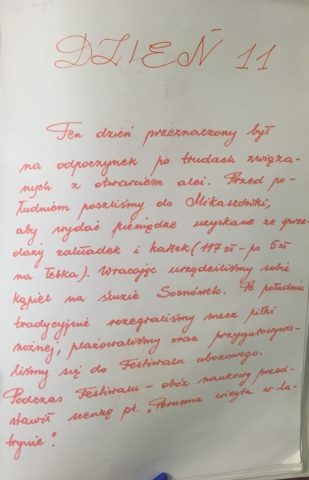 DZIEŃ 11
Ten dzień przeznaczony był
na odpoczynek po trudach związa-
nych z otwarciem alei. Przed po-
łudniem poszliśmy do Mikaszówki,
aby wydać pieniądze uzyskane ze sprze-
daży zakładek i kartek (117 zł - po 5 zł
na łebka). Wracając urządziliśmy sobie
kąpiel na śluzie Sosnówek. Po południu
tradycyjnie rozegraliśmy mecz piłki
nożnej, plażowaliśmy oraz przygotowywa-
liśmy się do Festiwalu obozowego.
Podczas Festiwalu - obóz naukowy przed-
stawił scenkę pt. „Poranna wizyta w la-
trynie".